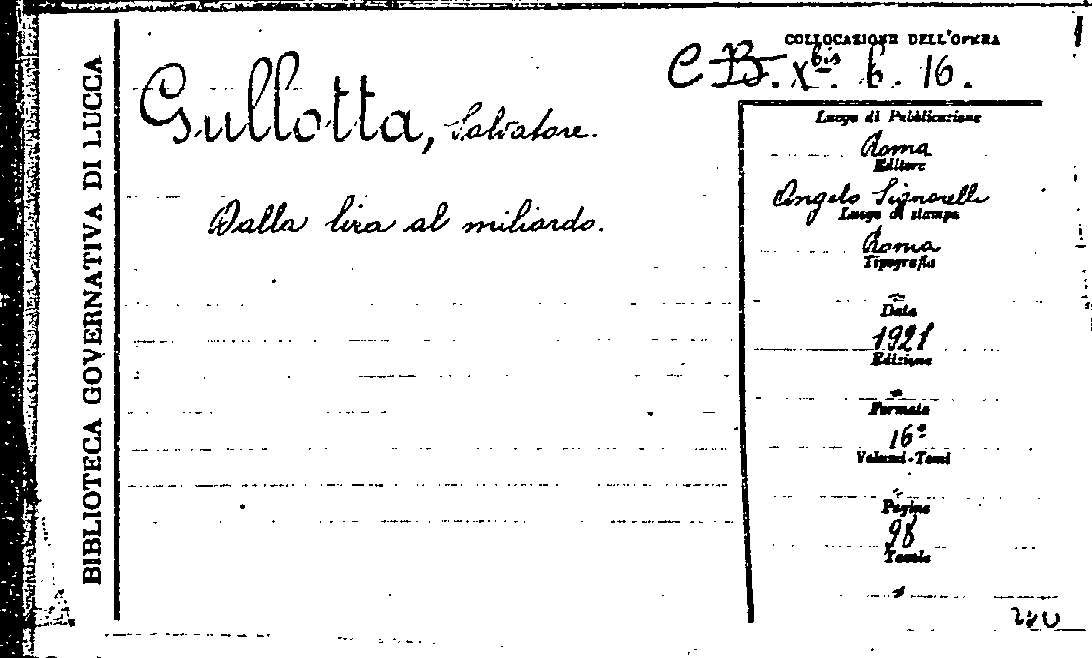 BIBLIOTECA GOVERNATIVA DI LUCCA
COLLOCAZIONE DELL'OPERA
C B. X bis. b. 16.
Gullotta, Salvatore.
Dalla lira al miliardo.
Luogo di Pubblicazione
Roma
Editore
Angelo Signorelli
Luogo di stampa
Roma
Tipografia
Data
1921
Edizione
Formato
16°
Volumi-Tomi
Pagine
98
Tavole